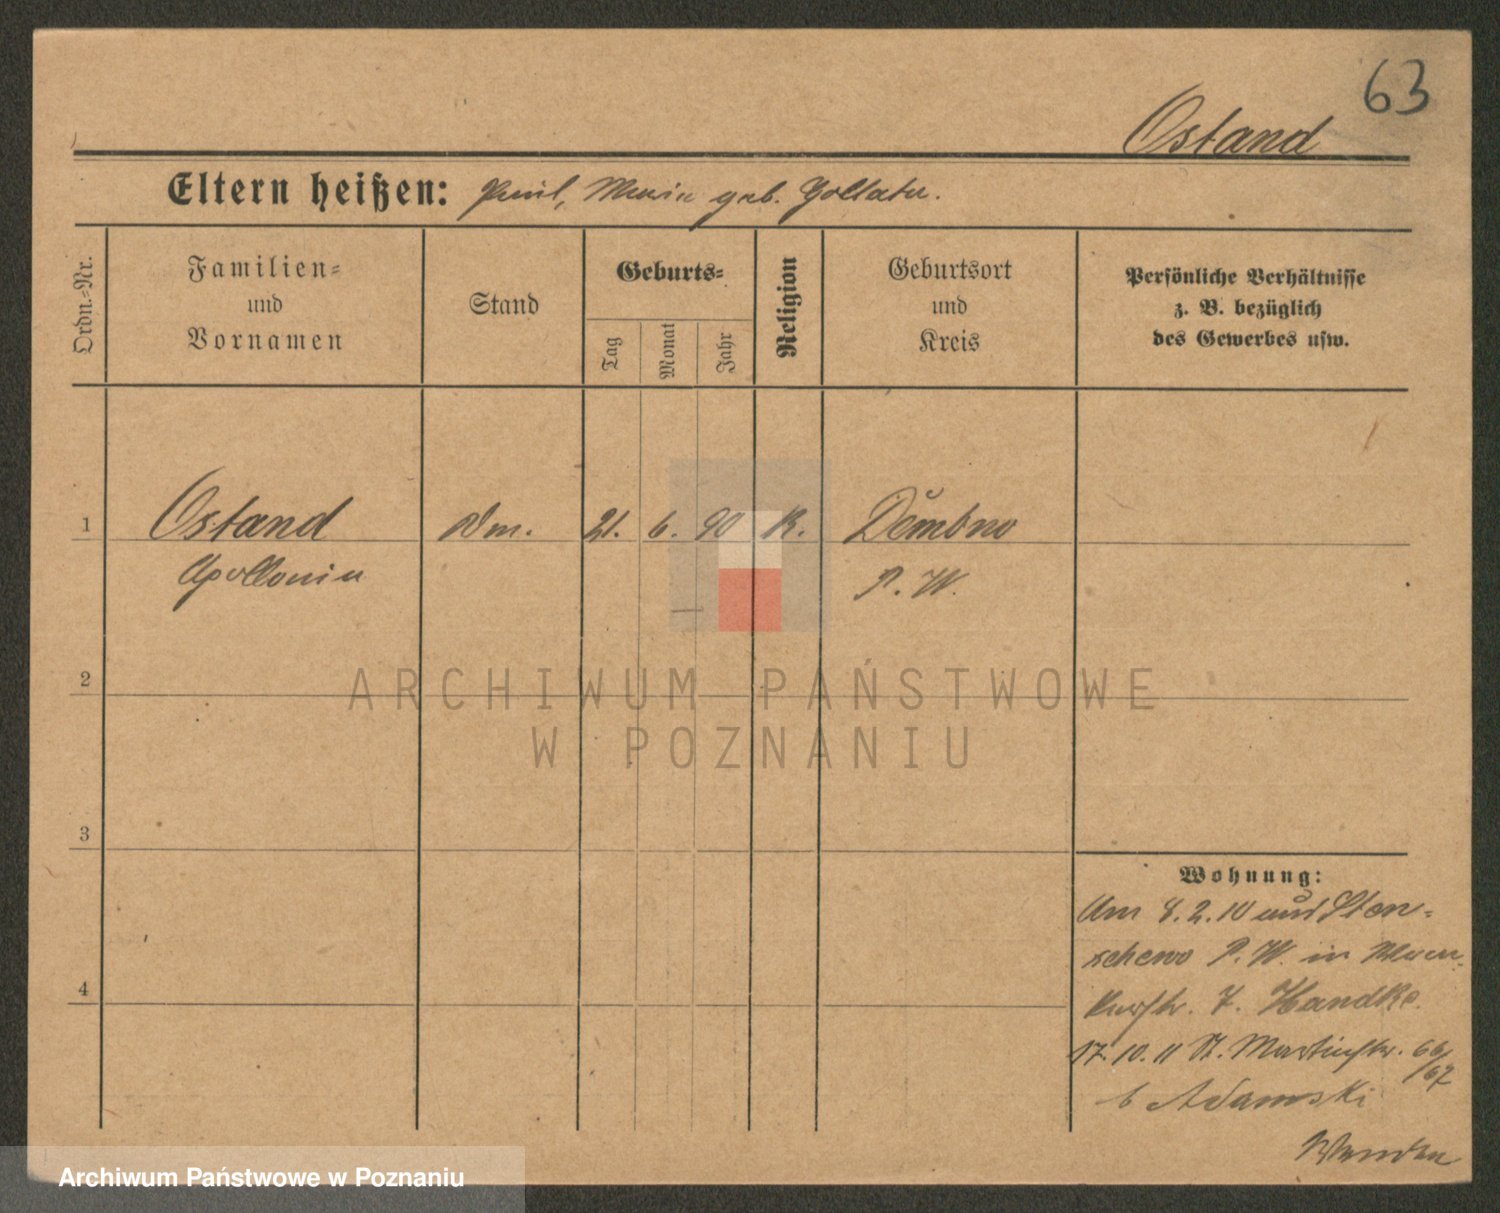 63
Ostand
Eltern heißen: Paul, Maria geb. Gollata.
Ordn.-Nr.
Familien- und Vornamen
Stand
Geburts-
Tag
Monat
Jahr
Religion
Geburtsort und Kreis
Persönliche Verhältnisse
z. B. bezüglich
des Gewerbes usw.
1 Ostand 21. 6. 90 K. Dembno
Apollonia P. W.
2
ARCHIWUM PAŃSTWOWE
W POZNANIU
3
4
Wohnung:
Am 8.2.10 aus Sten-
schewo P. W. in
7. Handke.
17.10.11 St. Martinstr. 66/67
b Adamski
Archiwum Państwowe w Poznaniu